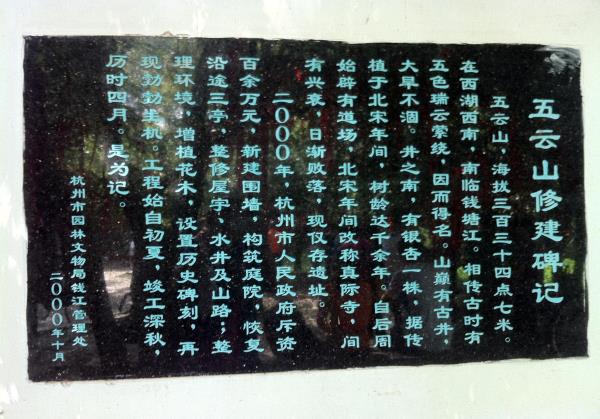 五云山修建碑记
五云山，海拔三百三十四点七米。
在西湖西南，南临钱塘江。相传古时有
五色瑞云萦绕，因而得名。山巅有古井，
大旱不涸。井之南，有银杏一株，据传
植于北宋年间，树龄达千余年。自后周
始辟有道场，北宋年间改称真际寺，间
有兴衰，日渐败落，现仅存遗址。
二000年，杭州市人民政府斥资
百余万元，新建围墙，构筑庭院，恢复
沿途三亭，整修屋宇、水井及山路；整
理环境，增植花木，设置历史碑刻，再
现勃勃生机。工程始自初夏，竣工深秋，
历时四月。是为记。
杭州市园林文物局钱江管理处
二000年十月